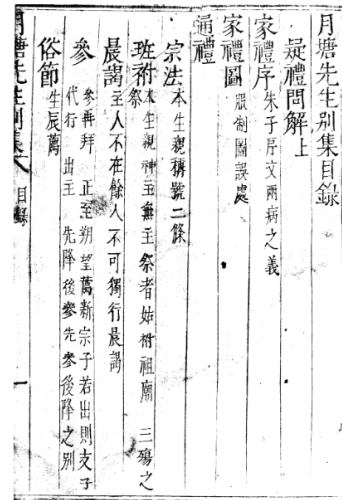 月塘先生別集目錄
疑禮問解上
家禮序 朱子序文兩病之義
家禮圖 服制圖誤處
通禮
宗法 本生親稱號二條
班祔 本生親神主無主祭者姑祔祖廟 三殤之
祭
晨謁 主人不在餘人不可獨行晨謁
參 參再拜 正至朔望薦新宗子若出則支子
代行出主 先降後參先參後降之別
俗節 生辰薦
月塘先生別集 目錄 一